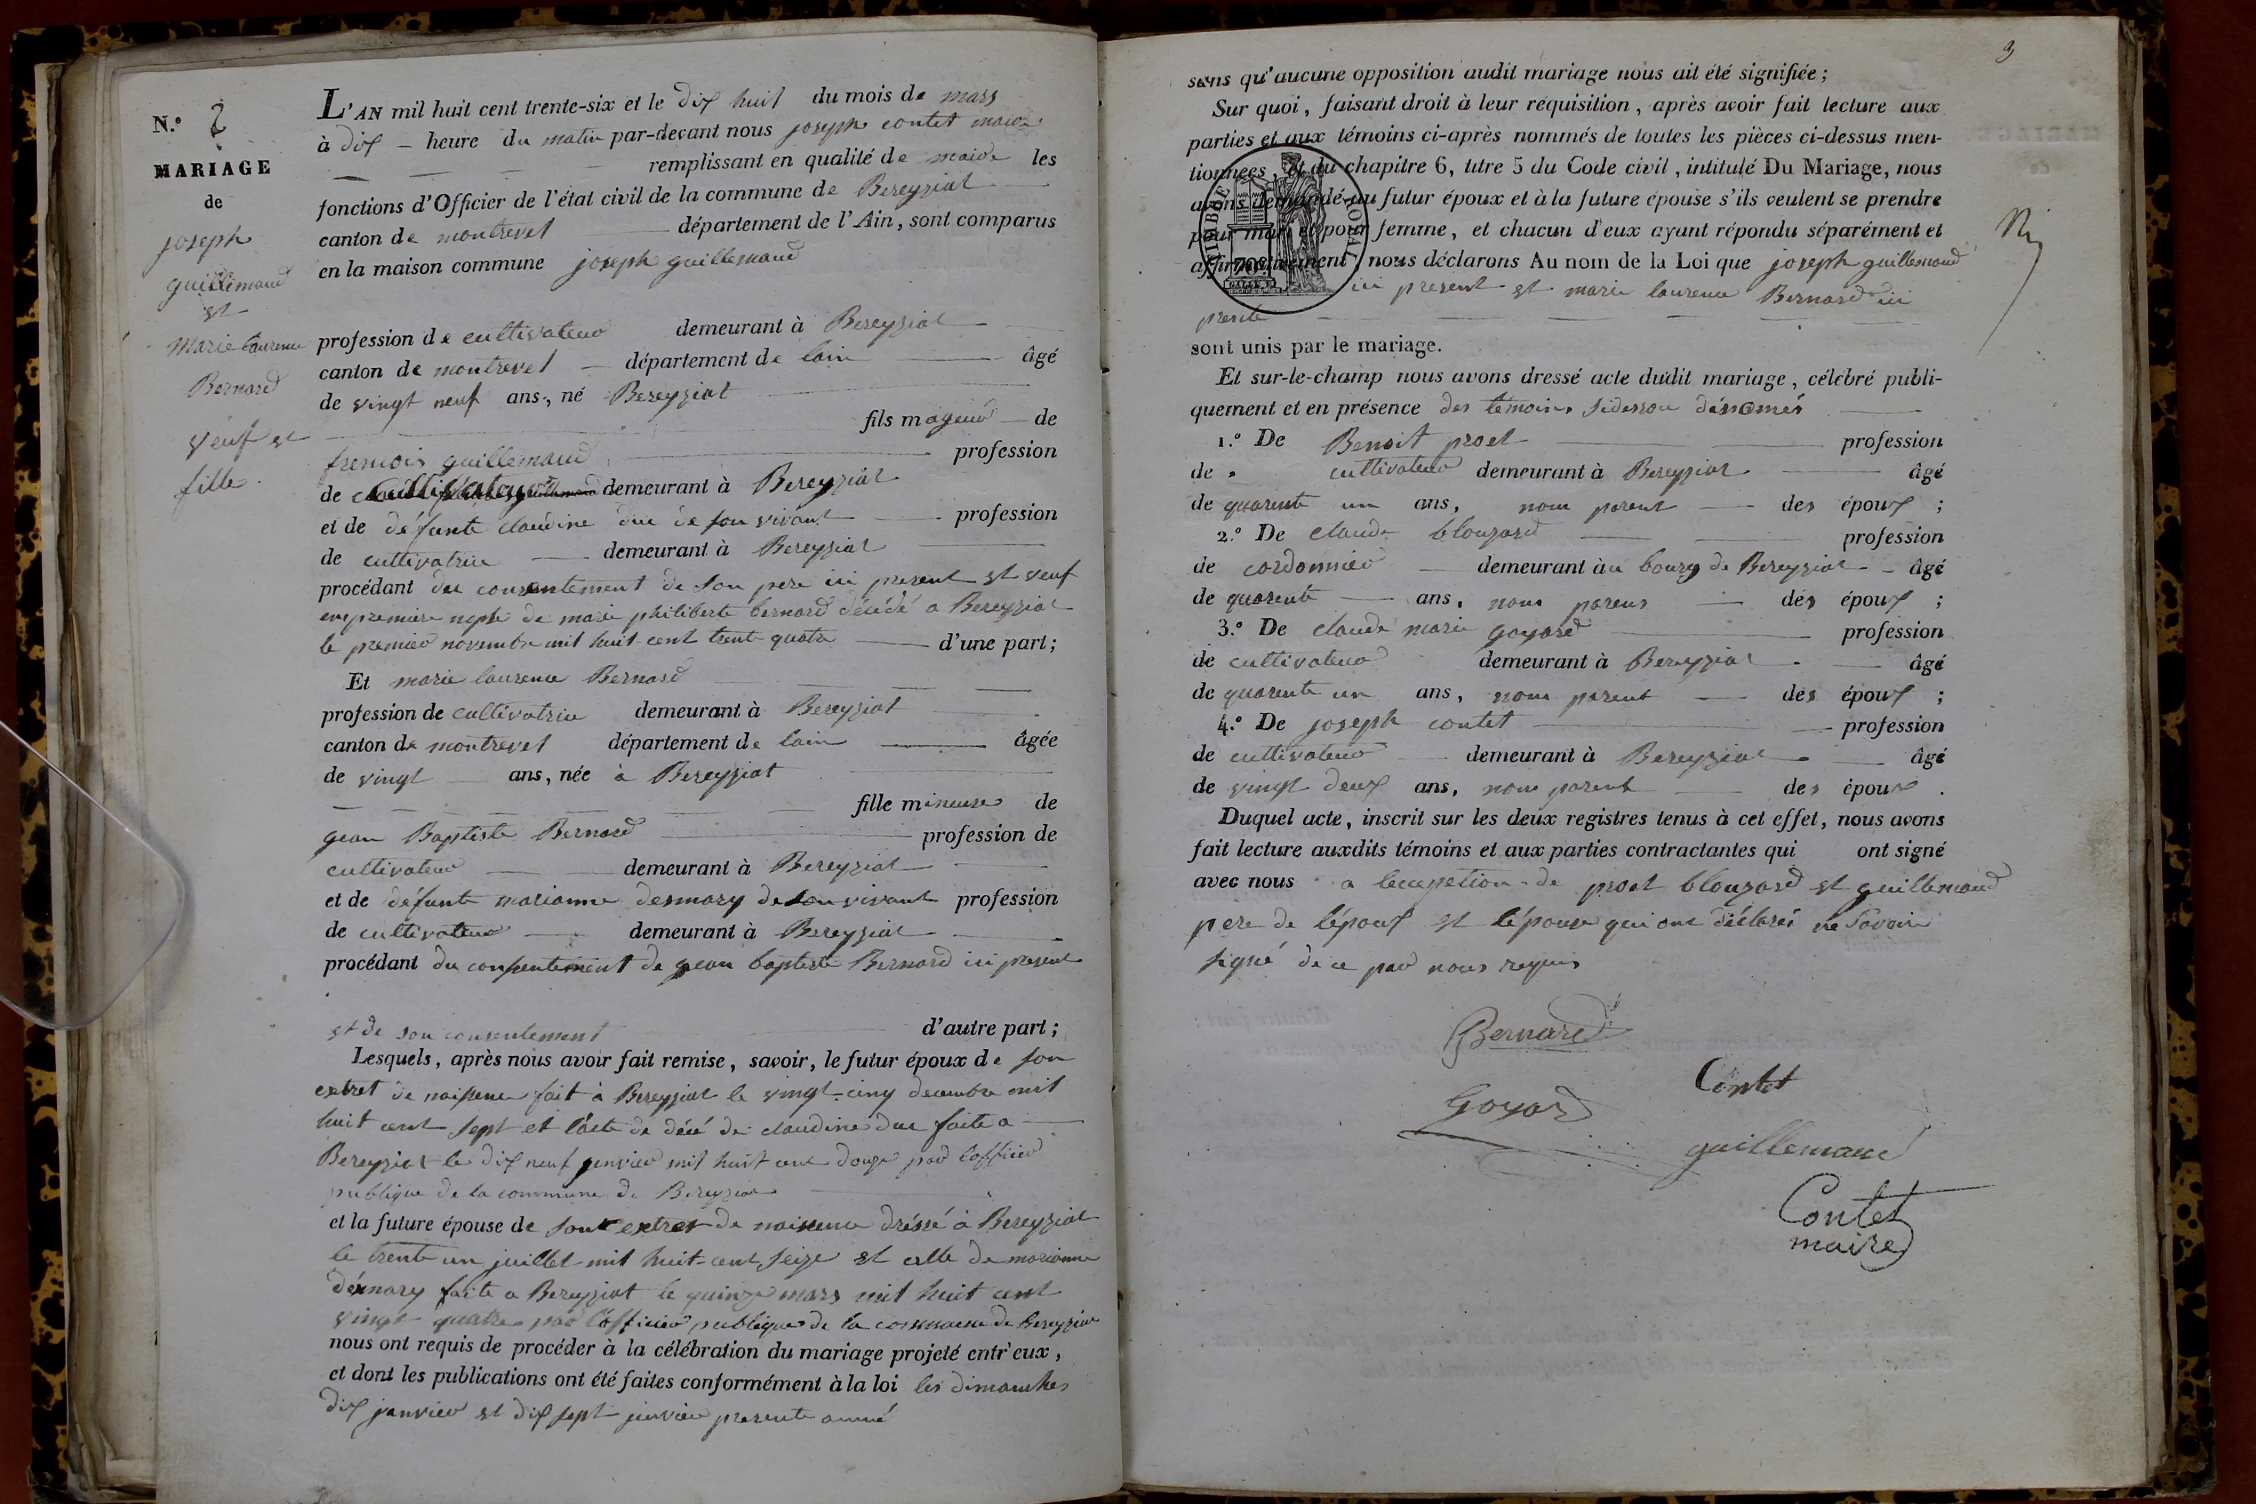 N.° 2
MARIAGE
de
joseph
guillemaud
et
Marie laurence
Bernard
veuf et
fille.
L'AN mil huit cent trente-six et le dix huit du mois de mars
à dix heure du matin par-devant nous joseph contet maire
remplissant en qualité de maire les
fonctions d'Officier de l'état civil de la commune de Bereyziat
canton de montrevel département de l'Ain, sont comparus
en la maison commune joseph guillemaud
profession de cultivateur demeurant à Bereyziat
canton de montrevel département de lain âgé
de vingt neuf ans, né Bereyziat
fils majeur de
frencois guillemaud profession
de Cultivateur demeurant à Bereyziat
et de défunte claudine duc de son vivant profession
de cultivatrice demeurant à Bereyziat
procédant du consentement de son pere ici present et veuf
en premiere de marie philiberte bernard décédé a Bereyziat
le premier novembre mil huit cent trente quatre d'une part;
Et marie laurence Bernard
profession de cultivatrice demeurant à Bereyziat
canton de montrevel département de lain âgée
de vingt ans, née à Bereyziat
fille mineure de
gean Baptiste Bernard profession de
cultivateur demeurant à Bereyziat
et de défunte marianne desmary de son vivant profession
de cultivateur demeurant à Bereyziat
procédant du consentement de gean baptiste Bernard ici present
et de son consentement d'autre part;
Lesquels, après nous avoir fait remise, savoir, le futur époux de son
extret de naissence fait à Bereyziat le vingt-cinq decembre mil
huit cent sept et l'acte de décé de claudine duc faite a
Bereyziat le dix neuf janvier mil huit cent douze par l'officier
publique de la commune de Bereyziat
et la future épouse de son extret de naissence dréssé à Bereyziat
le trente un juillet mil huit-cent seize et celle de marianne
démary faite a Bereyziat le quinze mars mil huit cent
vingt quatre par l'officier publique de la commune de Bereyziat
nous ont requis de procéder à la célébration du mariage projeté entr'eux,
et dont les publications ont été faites conformément à la loi les dimanches
dix janvier et dix sept janvier presente anné
3
sans qu'aucune opposition audit mariage nous ait été signifiée;
Sur quoi, faisant droit à leur réquisition, après avoir fait lecture aux
parties et aux témoins ci-après nommés de toutes les pièces ci-dessus men-
tionnées, et du chapitre 6, titre 5 du Code civil, intitulé Du Mariage, nous
avons demandé au futur époux et à la future épouse s'ils veulent se prendre
pour mari et pour femme, et chacun d'eux ayant répondu séparément et
affirmativement, nous déclarons Au nom de la Loi que joseph guillemaud
ici present et marie laurence Bernard ici
presente
sont unis par le mariage.
Et sur-le-champ nous avons dressé acte dudit mariage, célébré publi-
quement et en présence des temoins sidessou dénomés
1.° De Benoit proet profession
de cultivateur demeurant à Bereyziat âgé
de quarente un ans, nom parent des époux;
2.° De claude blouzard profession
de cordonnier demeurant au bourg de Bereyziat âgé
de quarente ans, nom parens des époux;
3.° De claude marie goyard profession
de cultivateur demeurant à Bereyziat âgé
de quarente un ans, nom parent des époux;
4.° De joseph contet profession
de cultivateur demeurant à Bereyziat âgé
de vingt deux ans, nom parent des époux.
Duquel acte, inscrit sur les deux registres tenus à cet effet, nous avons
fait lecture auxdits témoins et aux parties contractantes qui ont signé
avec nous a lecepetion de proet blouzard et guillemaud
pere de l'époux et lépouse qui ont déclarés ne savoir
signé de ce par nous requis
Bernard
Contet
Goyard
guillemaud
Contet
maire
TIMBRE ROYAL